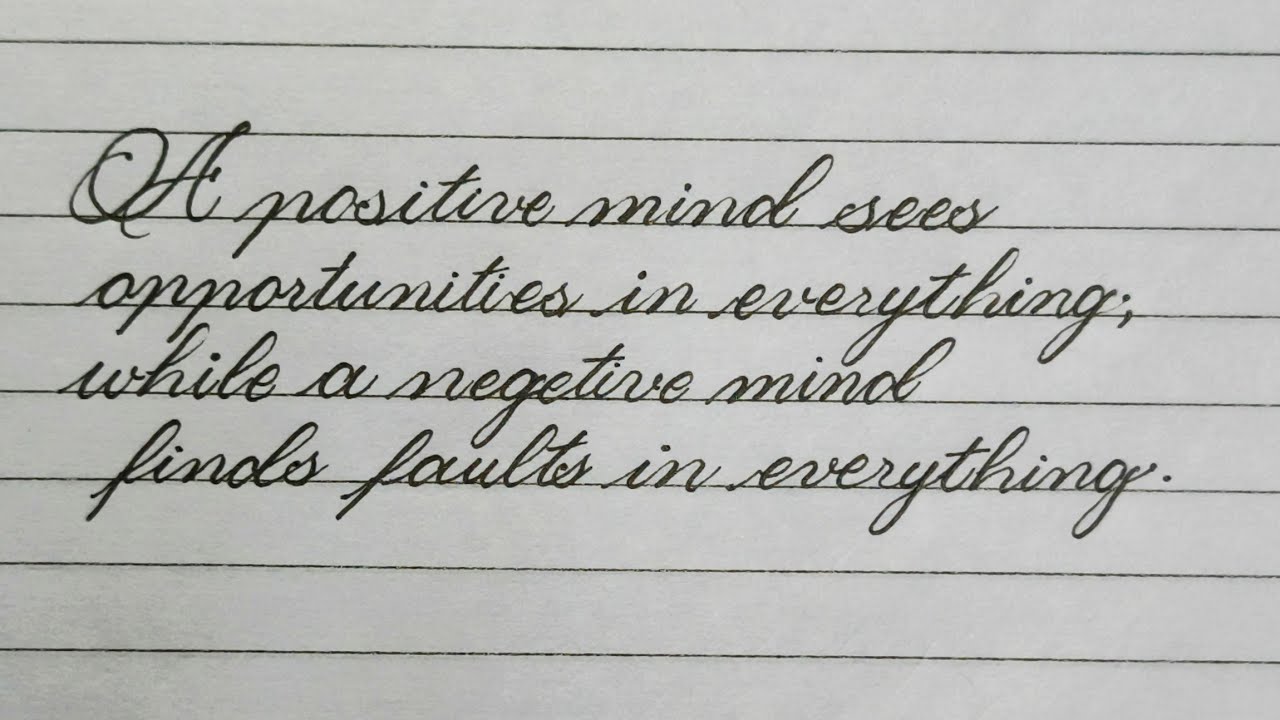 A positive mind sees
opportunities in everything;
while a negetive mind
finds faults in everything.